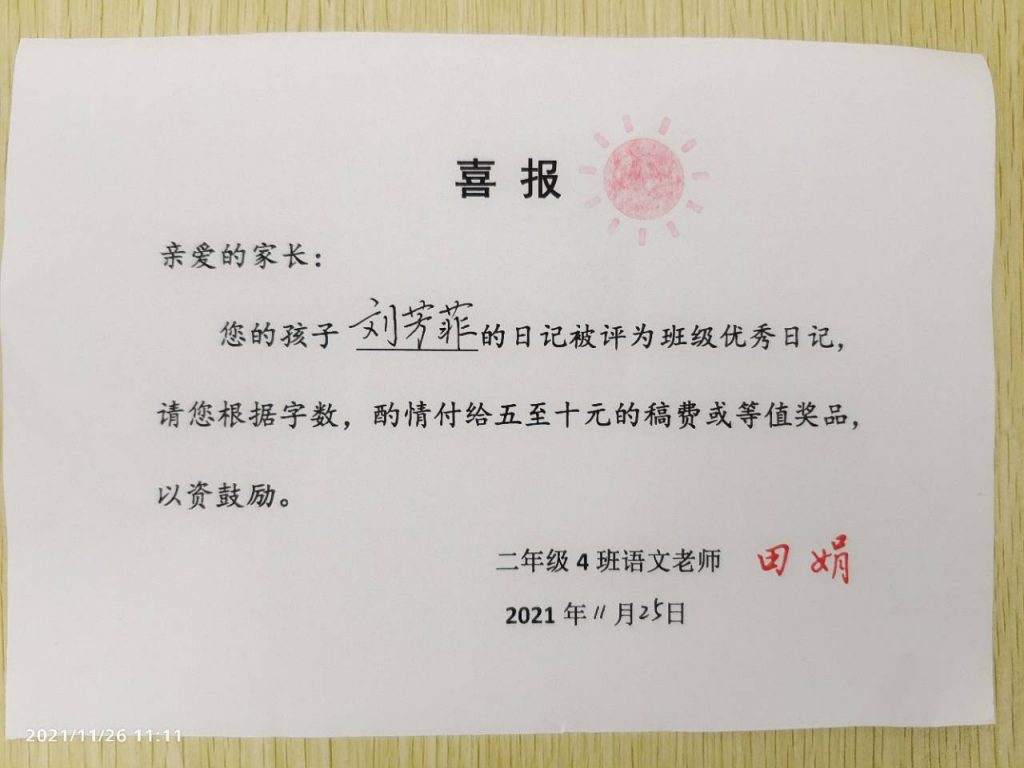 喜报
亲爱的家长：
您的孩子 刘芳菲 的日记被评为班级优秀日记，
请您根据字数，酌情付给五至十元的稿费或等值奖品，
以资鼓励。
二年级 4 班语文老师 田娟
2021 年 11 月 25 日
2021/11/26 11:11